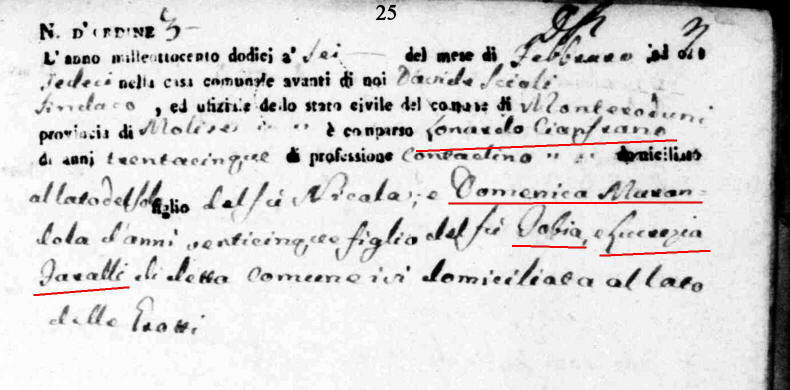 25
N. D'ORDINE 3
L'anno milleottocento dodici a' sei del mese di Febbraro ad ore
sedeci nella casa comunale avanti di noi Davide Scioli
Sindaco, ed ufiziale dello stato civile del comune di Monteroduni
provincia di Molise è comparso Lonardo Cianfrano
di anni trentacinque di professione Contadino domiciliato
al lato del figlio del fù Nicola; e Domenica Muran=
dola d'anni venticinque figlio del fù Tobia, e Lucrezia
Iaralli di detta Comune ivi domiciliata al lato
delle